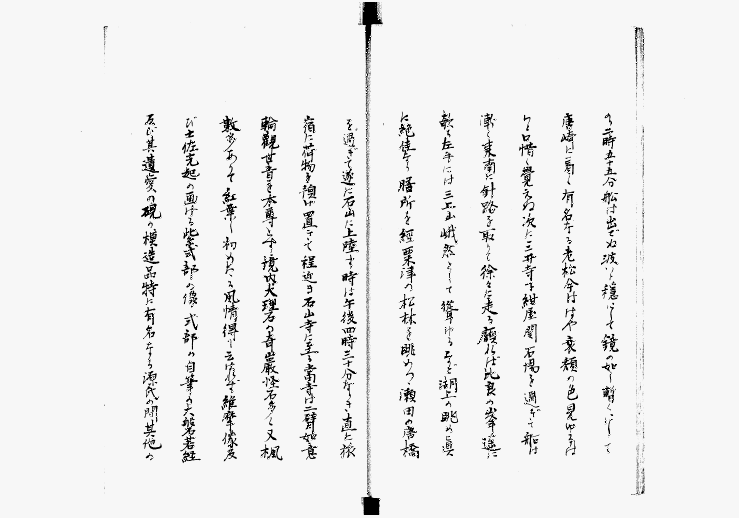 の二時五十五分船は出でぬ波いと穏にして鏡の如し暫くにして
唐崎に着く有名なる老松今ははや衰頽の色見ゆるは
いと口惜く覚えぬ次に三井寺下紺屋関石場を過ぎて船は
漸く東南に針路を取りて徐々に走る顧れば比良の峯遥に
歌く左手には三上山峨然として聳ゆるなど湖上の眺め真
に絶佳なり膳所を経粟津の松林を眺めつゝ瀬田の唐橋
を過ぎて遂に石山に上陸す時は午後四時三十分なりき直に旅
宿に荷物を預け置きて程近き石山寺に至る当寺は二臂如意
輪観世音を本尊とす境内大理石の奇巌怪石多く又楓
数多ありて紅葉し初めたる風情得も云はれず維摩像及
び土佐光起の画ける紫式部の像、式部の自筆の大般若経
及び其遺愛の硯の模造品特に有名なる源氏の間其他の